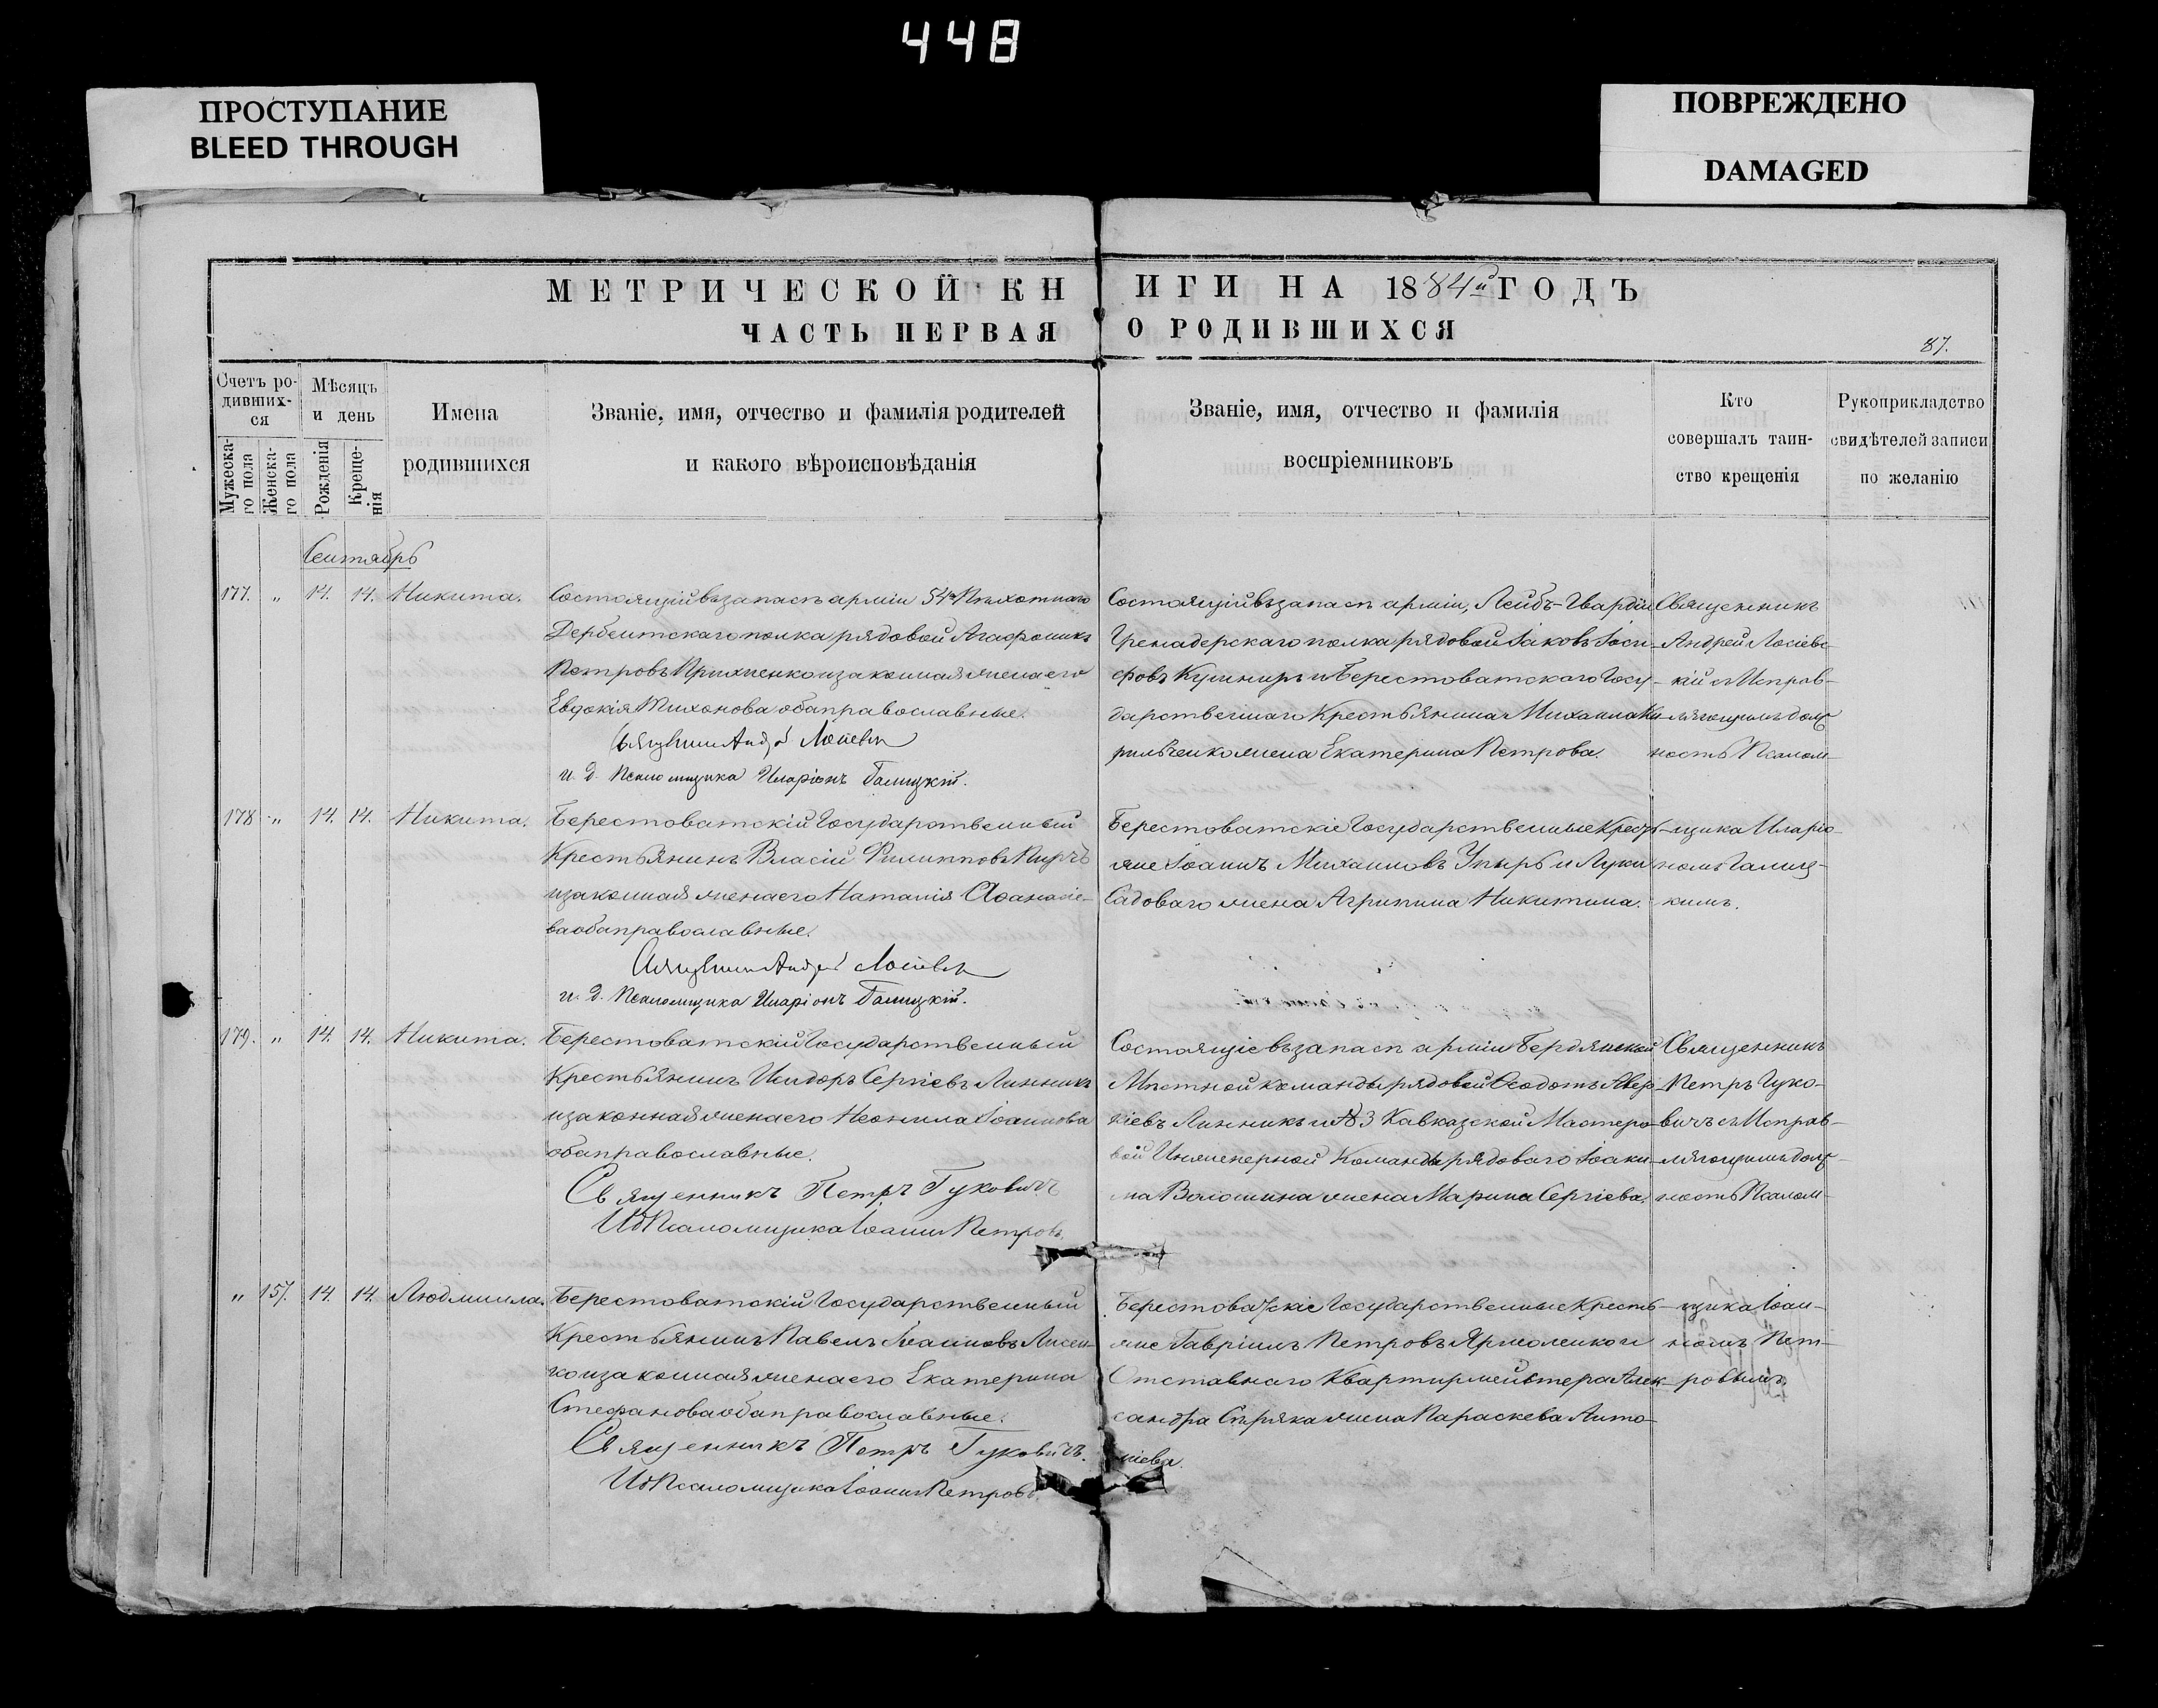 448
ПРОСТУПАНИЕ
BLEED THROUGH
ПОВРЕЖДЕНО
DAMAGED
МЕТРИЧЕСКОЙ КНИГИ НА 1884й ГОДЪ
ЧАСТЬ ПЕРВАЯ О РОДИВШИХСЯ
87.
Счетъ ро-
дивших-
ся
Мужеска-
го пола
Женска-
го пола
Мѣсяцъ
и день
Рожденія
Креще-
нія
Имена
родившихся
Званіе, имя, отчество и фамилія родителей
и какого вѣроисповѣданія
Званіе, имя, отчество и фамилія
воспріемниковъ
Кто
совершалъ таин-
ство крещенія
Рукоприкладство
свидѣтелей записи
по желанію
Сентябрь
177. " 14. 14. Никита.
Состоящій въ запасѣ арміи 54го Пѣхотнаго
Дербентскаго полка рядовой Агафоникъ
Петровъ и законная жена его
Евдокія Тихонова оба православные.
Священникъ Андрей
и. д. Псаломщика Иларіонъ Галицкій.
Состоящій въ запасѣ арміи, Лейбъ-Гвардіи
Гренадерскаго полка рядовой Іаковъ Іоси-
фовъ Кушниръ и Берестоватскаго Госу-
дарственнаго Крестьянина Михаила Ки-
рильченко жена Екатерина Петрова.
Священникъ
Андрей Лосіевс-
кій съ Исправ-
ляющимъ долж-
ность Псалом-
178 " 14. 14. Никита.
Берестоватскій Государственный
Крестьянинъ Власій Филипповъ
и законная жена его Наталія Аѳанасіе-
ва оба православные.
Священникъ Андрей
и. д. Псаломщика Иларіонъ Галицкій.
Берестоватскіе Государственные Кресть-
яне Іоаннъ Михаиловъ Упырь и Луки
Садоваго жена Агрипина Никитина.
щика Иларіо-
номъ Галиц-
кимъ.
179. " 14. 14. Никита.
Берестоватскій Государственный
Крестьянинъ Исидоръ Сергіевъ Линникъ
и законная жена его Неонила Іоаннова
оба православные.
Священникъ Петръ Гуковичъ
ИдПсаломщика Іоаннъ Петровъ.
Состоящіе въ запасѣ арміи Бердянской
Мѣстной команды рядовой Ѳеодотъ Авер-
кіевъ Линникъ и №3 Кавказской Мастеро-
вой Инженерной Команды рядоваго Іоаки-
ма Волошина жена Марина Сергіева.
Священникъ
Петръ Гуко-
вичъ съ Исправ-
ляющимъ долж-
ность Псалом-
" 157. 14. 14. Людмила.
Берестоватскій Государственный
Крестьянинъ Павелъ Іоанновъ Лисен-
ко и законная жена его Екатерина
Стефанова оба православные.
Священникъ Петръ Гуковичъ.
ИдПсаломщика Іоаннъ Петровъ.
Берестоватскіе Государственные Кресть-
яне Гавріилъ Петровъ Ярмоленко и
Отставнаго Квартирмейстера Алек-
сандра жена Параскева Анто-
ніева.
щика Іоан-
номъ Пет-
ровымъ.